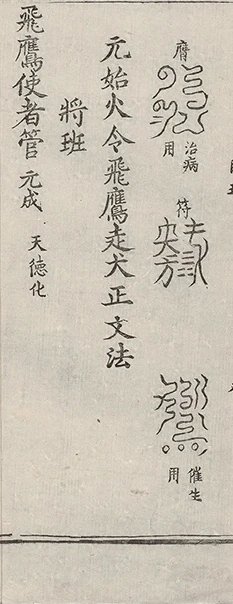 膺
治病
用
符
催生
用
元始火令飛鷹走犬正文法
將班
飛鷹使者管元成
天德化